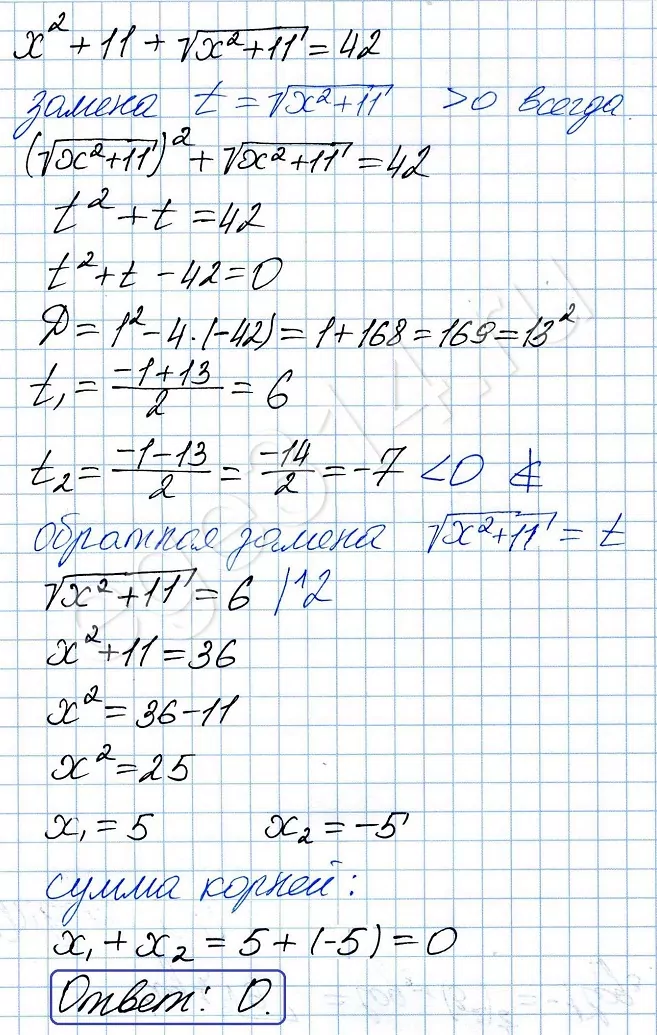 x² + 11 + √(x²+11) = 42
замена t = √(x²+11) >0 всегда.
(√(x²+11))² + √(x²+11) = 42
t² + t = 42
t² + t - 42 = 0
D = 1² - 4·(-42) = 1 + 168 = 169 = 13²
t₁ = (-1+13)/2 = 6
t₂ = (-1-13)/2 = -14/2 = -7 <0
обратная замена √(x²+11) = t
√(x²+11) = 6 |^2
x² + 11 = 36
x² = 36 - 11
x² = 25
x₁ = 5 x₂ = -5
сумма корней:
x₁ + x₂ = 5 + (-5) = 0
Ответ: 0.